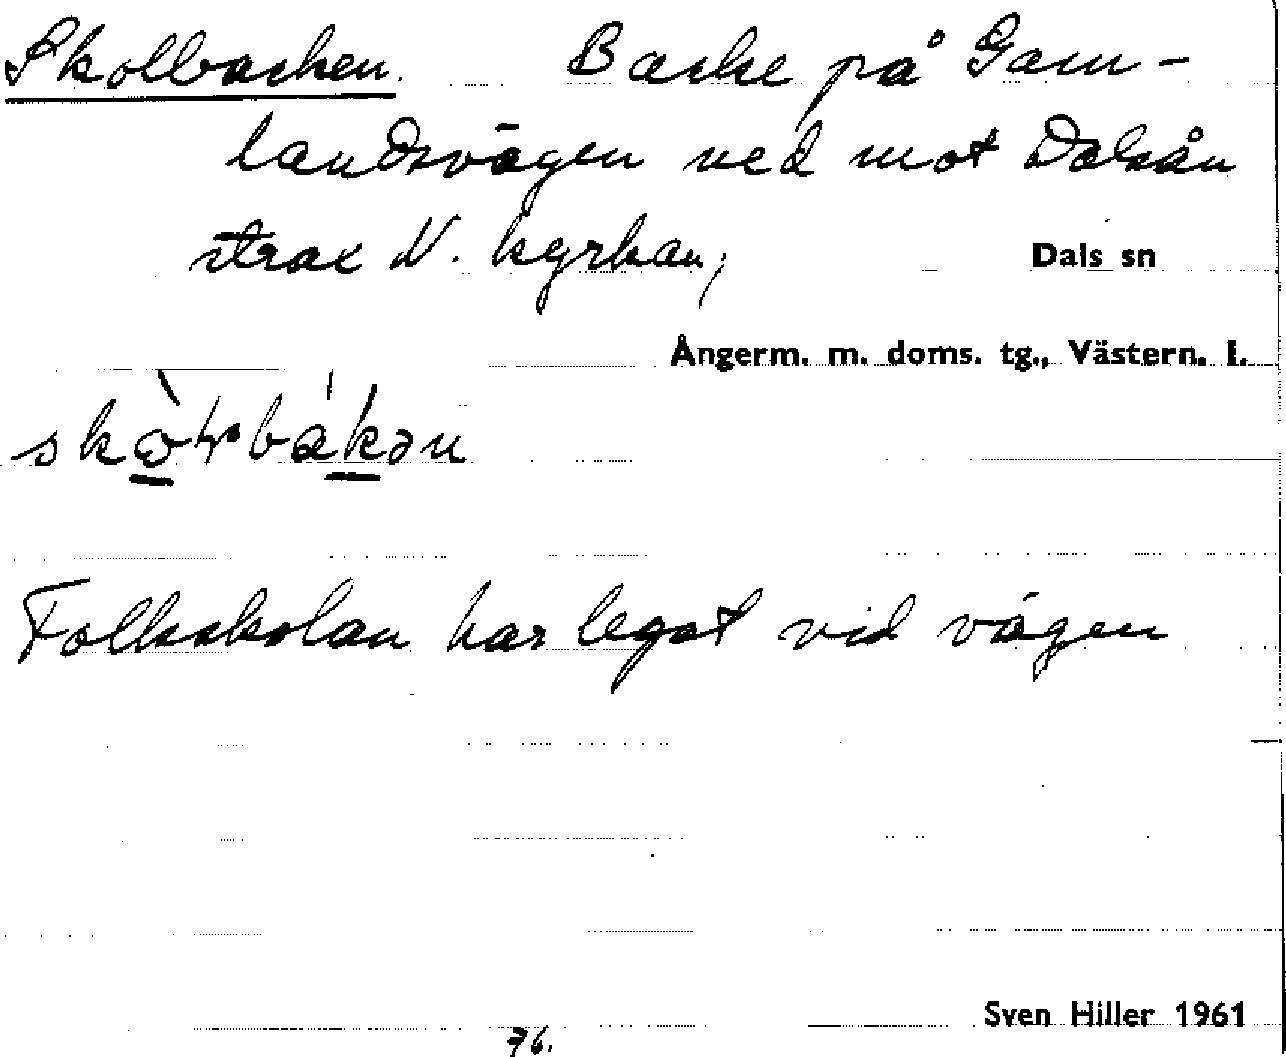 Skolbacken. Backe på Gam-
landsvägen ned mot Dalsån
strax N. kyrkan,
Dals sn
Ångerm. m. doms. tg., Västern. l.
Folkskolan har legat vid vägen
Sven Hiller 1961
76.